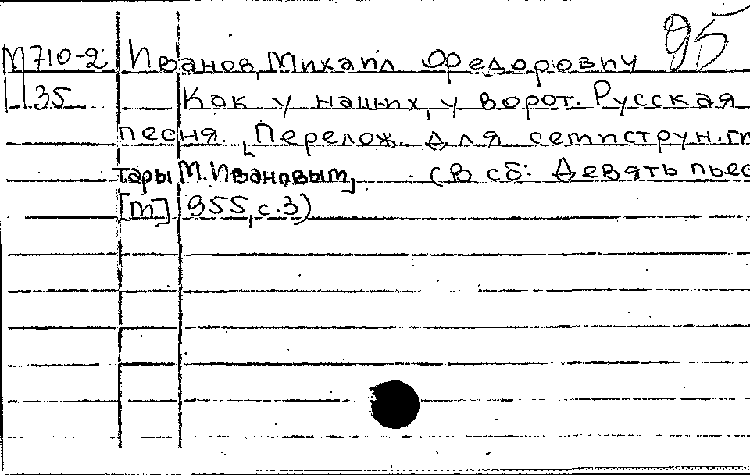 М710-2 Иванов, Михаил Федорович 95
35 Как у наших, у ворот. Русская
песня. [Перелож. для семиструн. ги
тары М. Ивановым]. (В сб: Девять пьес
[М] 1955, с.3)